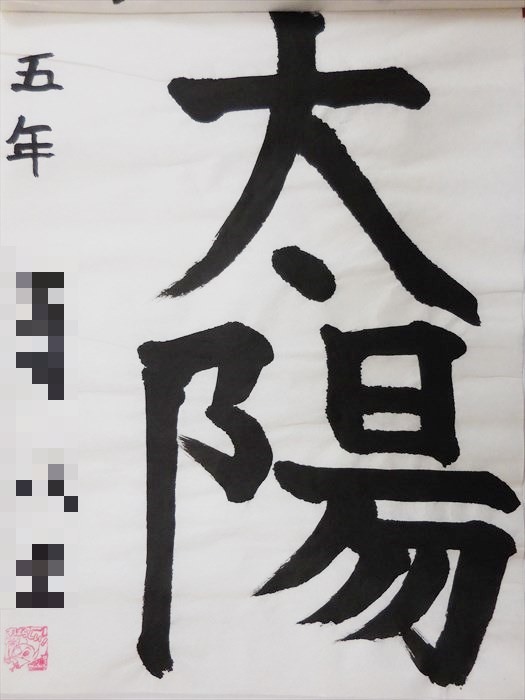 太陽
五年